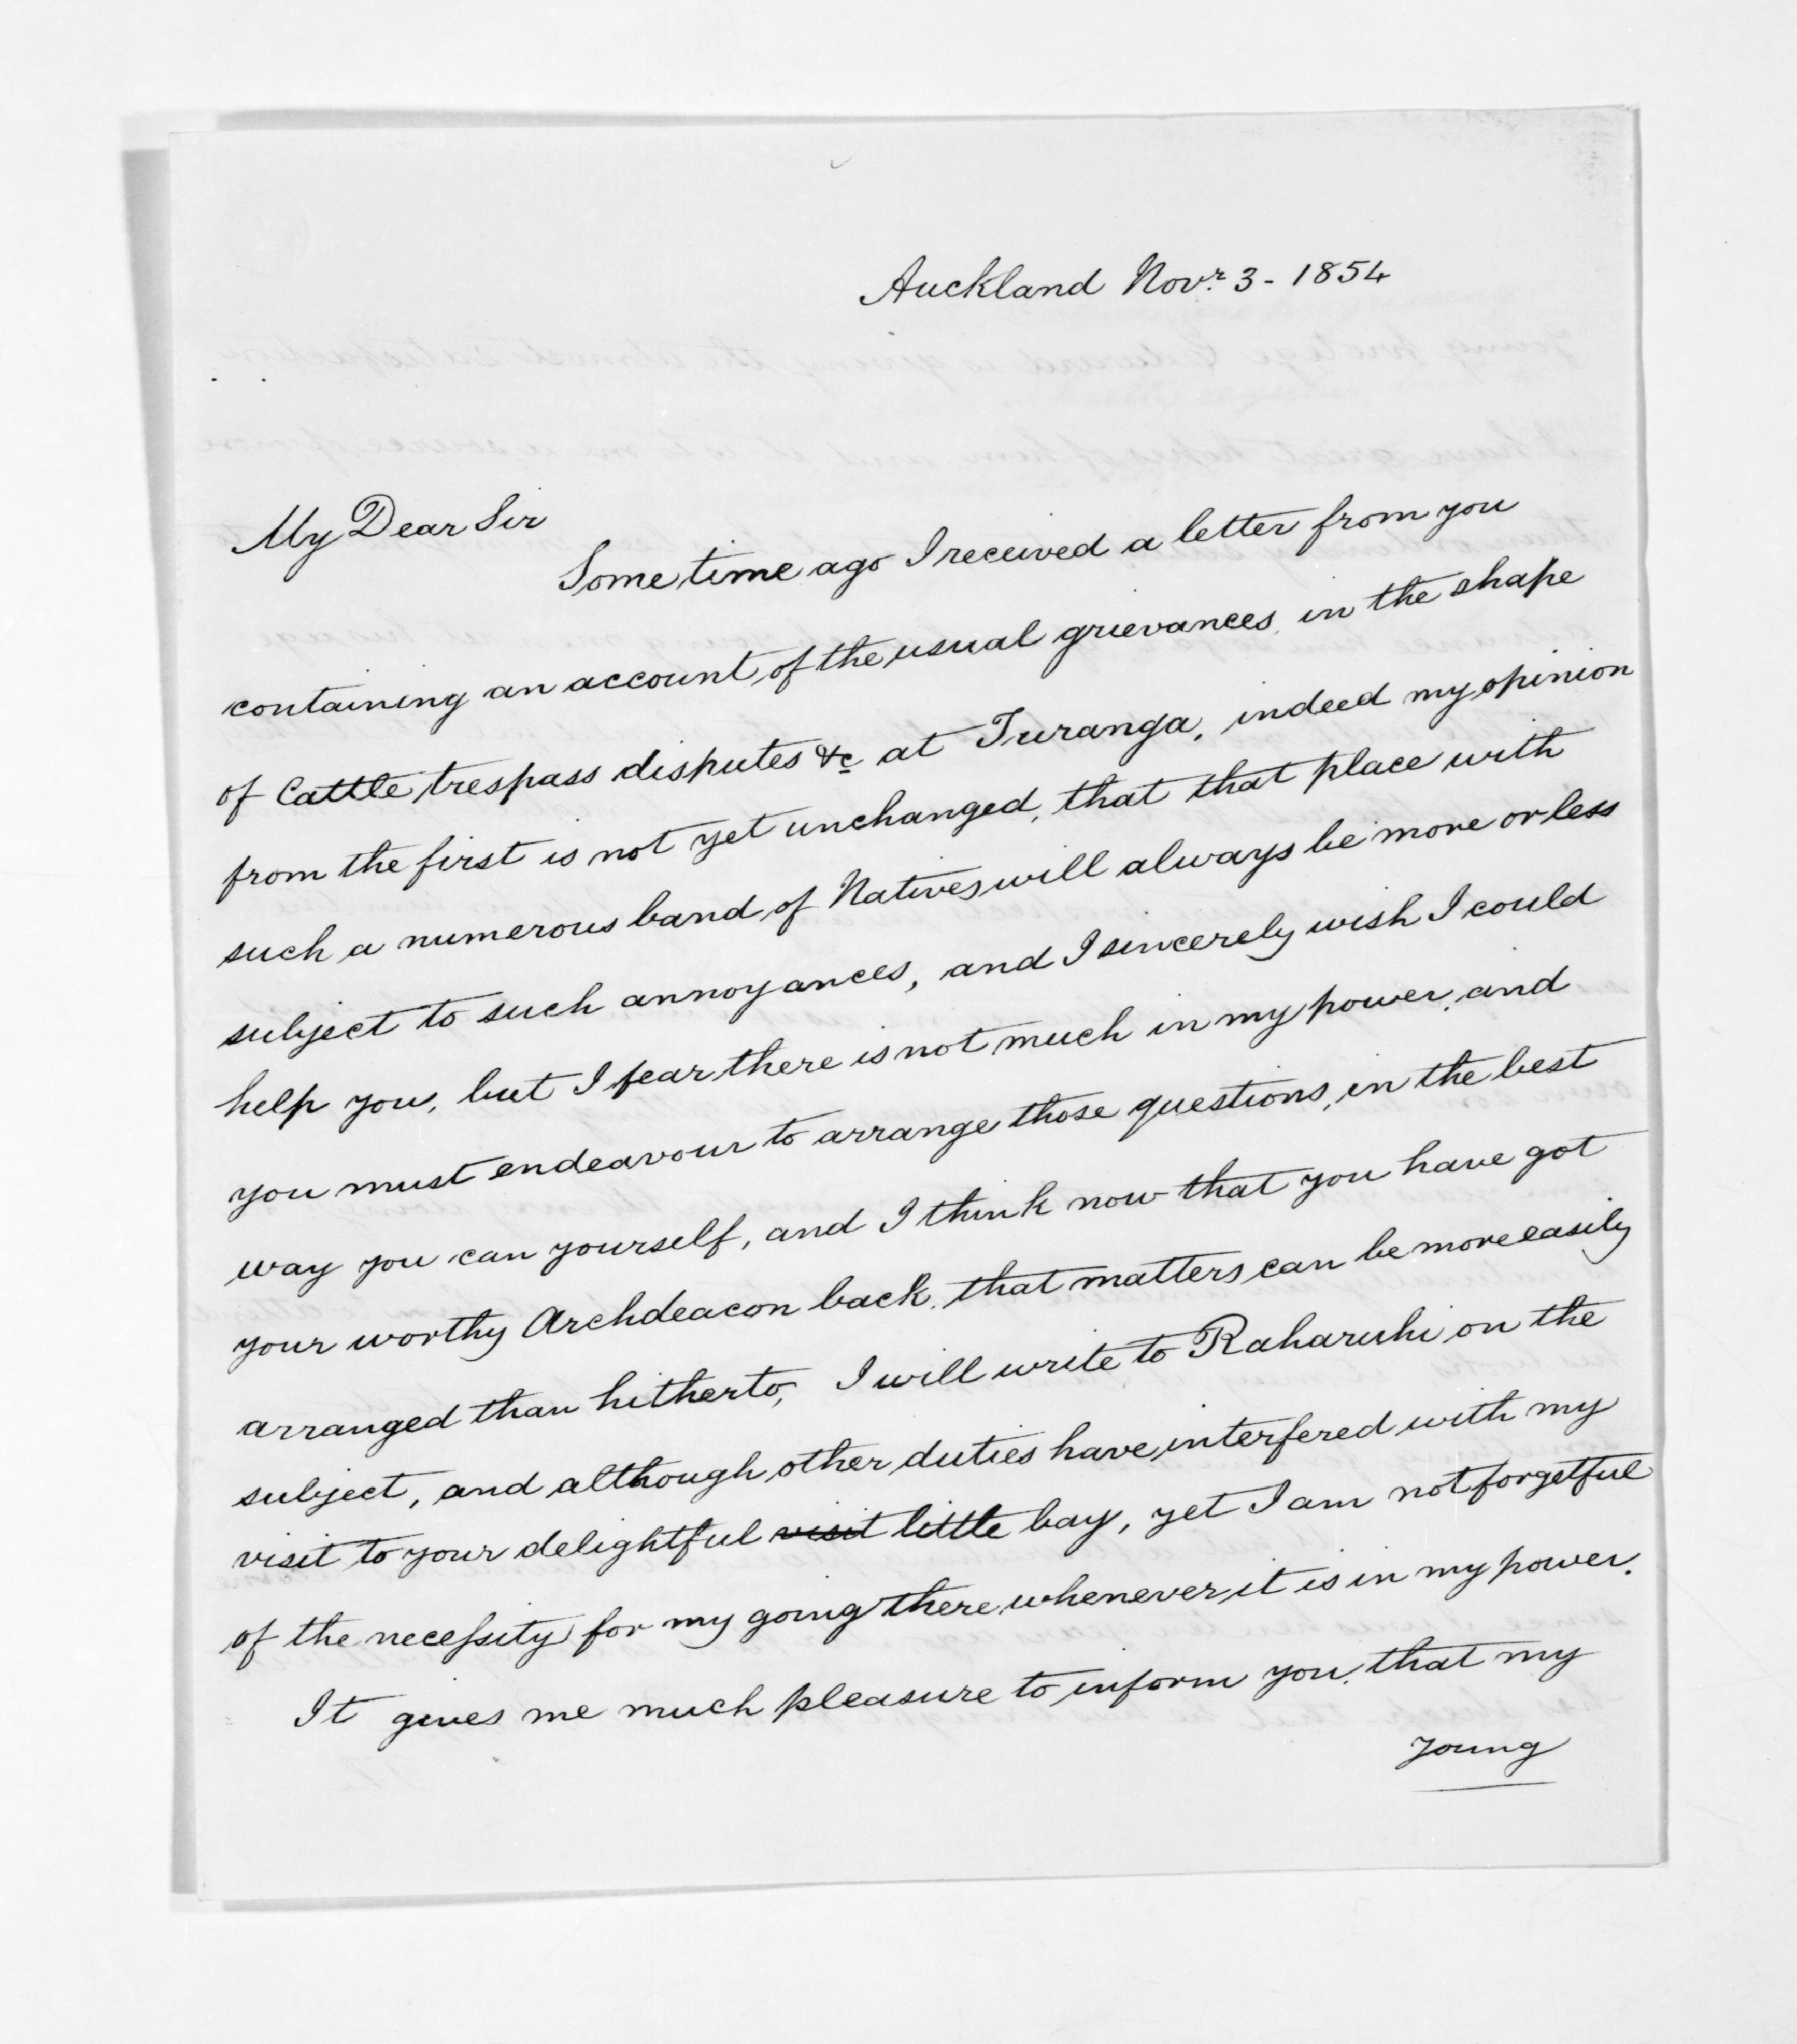 Auckland Novr. 3 - 1854
My Dear Sir
Some time ago I received a letter from you
containing an account of the usual grievances, in the shape
of Cattle trespass disputes &c at Turanga, indeed my opinion
from the first is not yet unchanged, that that place with
such a numerous band of Natives will always be more or less
subject to such annoyances, and I sincerely wish I could
help you, but I fear there is not much in my power, and
you must endeavour to arrange those questions, in the best
way you can yourself, and I think now that you have got
your worthy Archdeacon back, that matters can be more easily
arranged than hitherto, I will write to Raharuhi on the
subject, and although other duties have interfered with my
visit to your delightful visit little bay, yet I am not forgetful
of the necessity for my going there whenever it is in my power.
It gives me much pleasure to inform you, that my
young